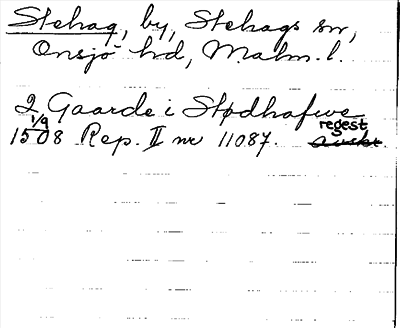 Stehag, by, Stehags sn,
Onsjö hd, Malm. l.
2 Gaarde i Stødhafwe
1/9 regest
1508 Rep. II nr 11087.